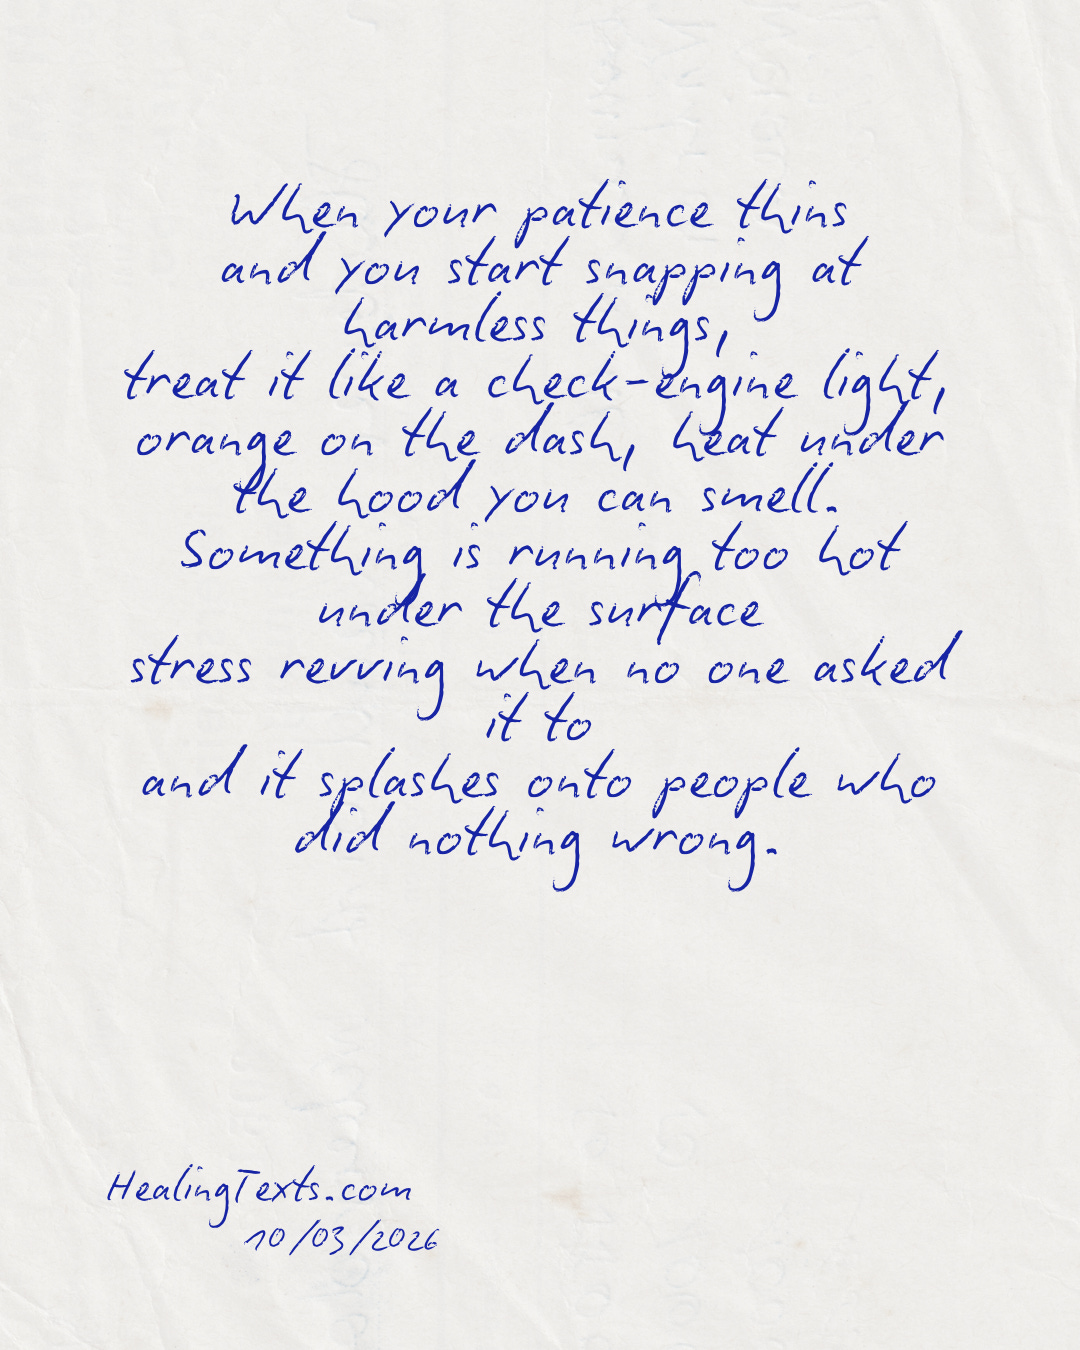 When your patience thins
and you start snapping at
harmless things,
treat it like a check-engine light,
orange on the dash, heat under
the hood you can smell.
Something is running too hot
under the surface
stress revving when no one asked
it to
and it splashes onto people who
did nothing wrong.
HealingTexts.com
10/03/2026